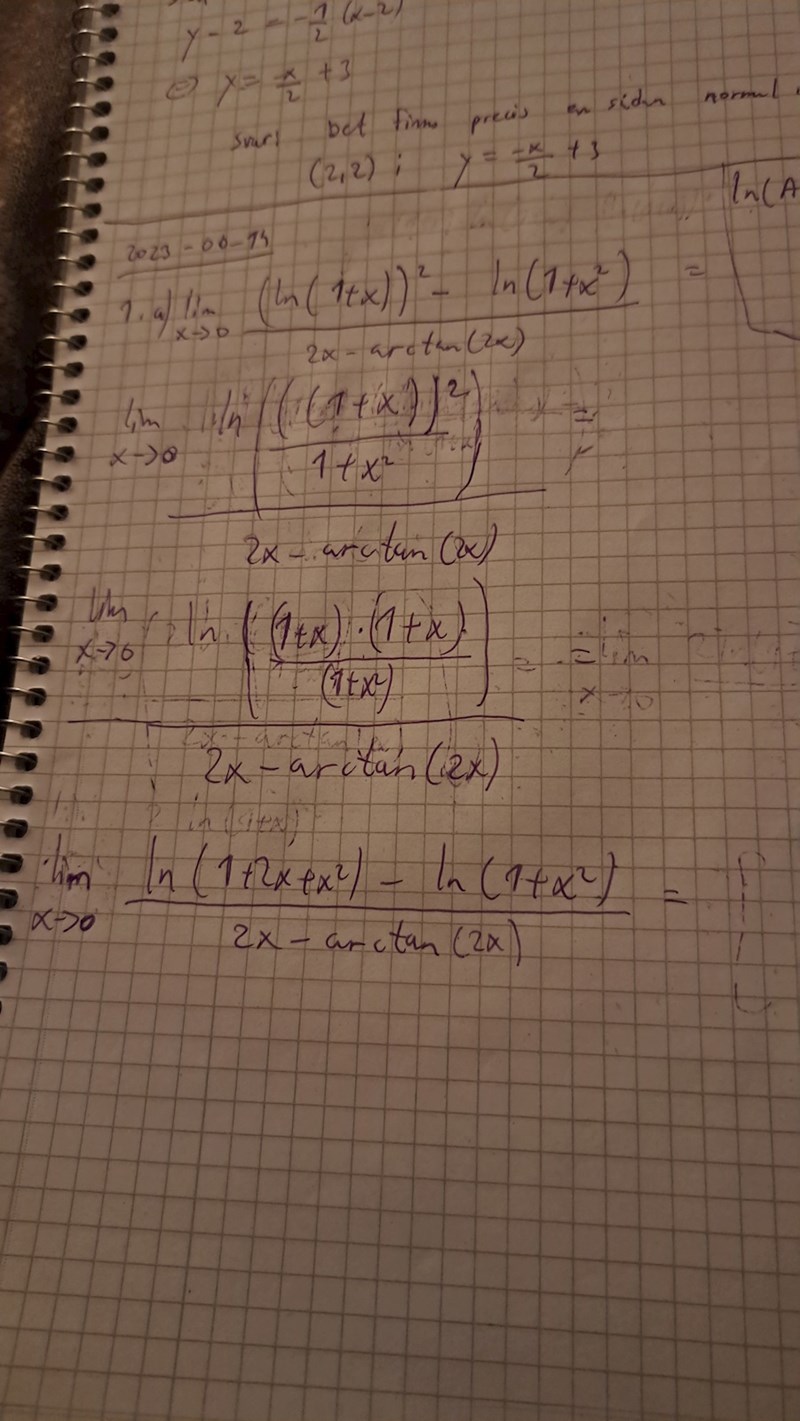 y-2 = -1/2 (x-2)
⇔ y = x/2 + 3
svar: Det finns precis en sådan normal i
(2,2) ; y = -x/2 + 3
ln(A
2023-06-14
1. a) lim x→0 ((ln(1+x))² - ln(1+x²)) / (2x - arctan(2x)) =
lim x→0 ln(((1+x))² / (1+x²)) / (2x - arctan(2x)) =
lim x→0 ln((1+x)·(1+x) / (1+x²)) / (2x - arctan(2x)) = = lim x→0
lim x→0 (ln(1+2x+x²) - ln(1+x²)) / (2x - arctan(2x)) =